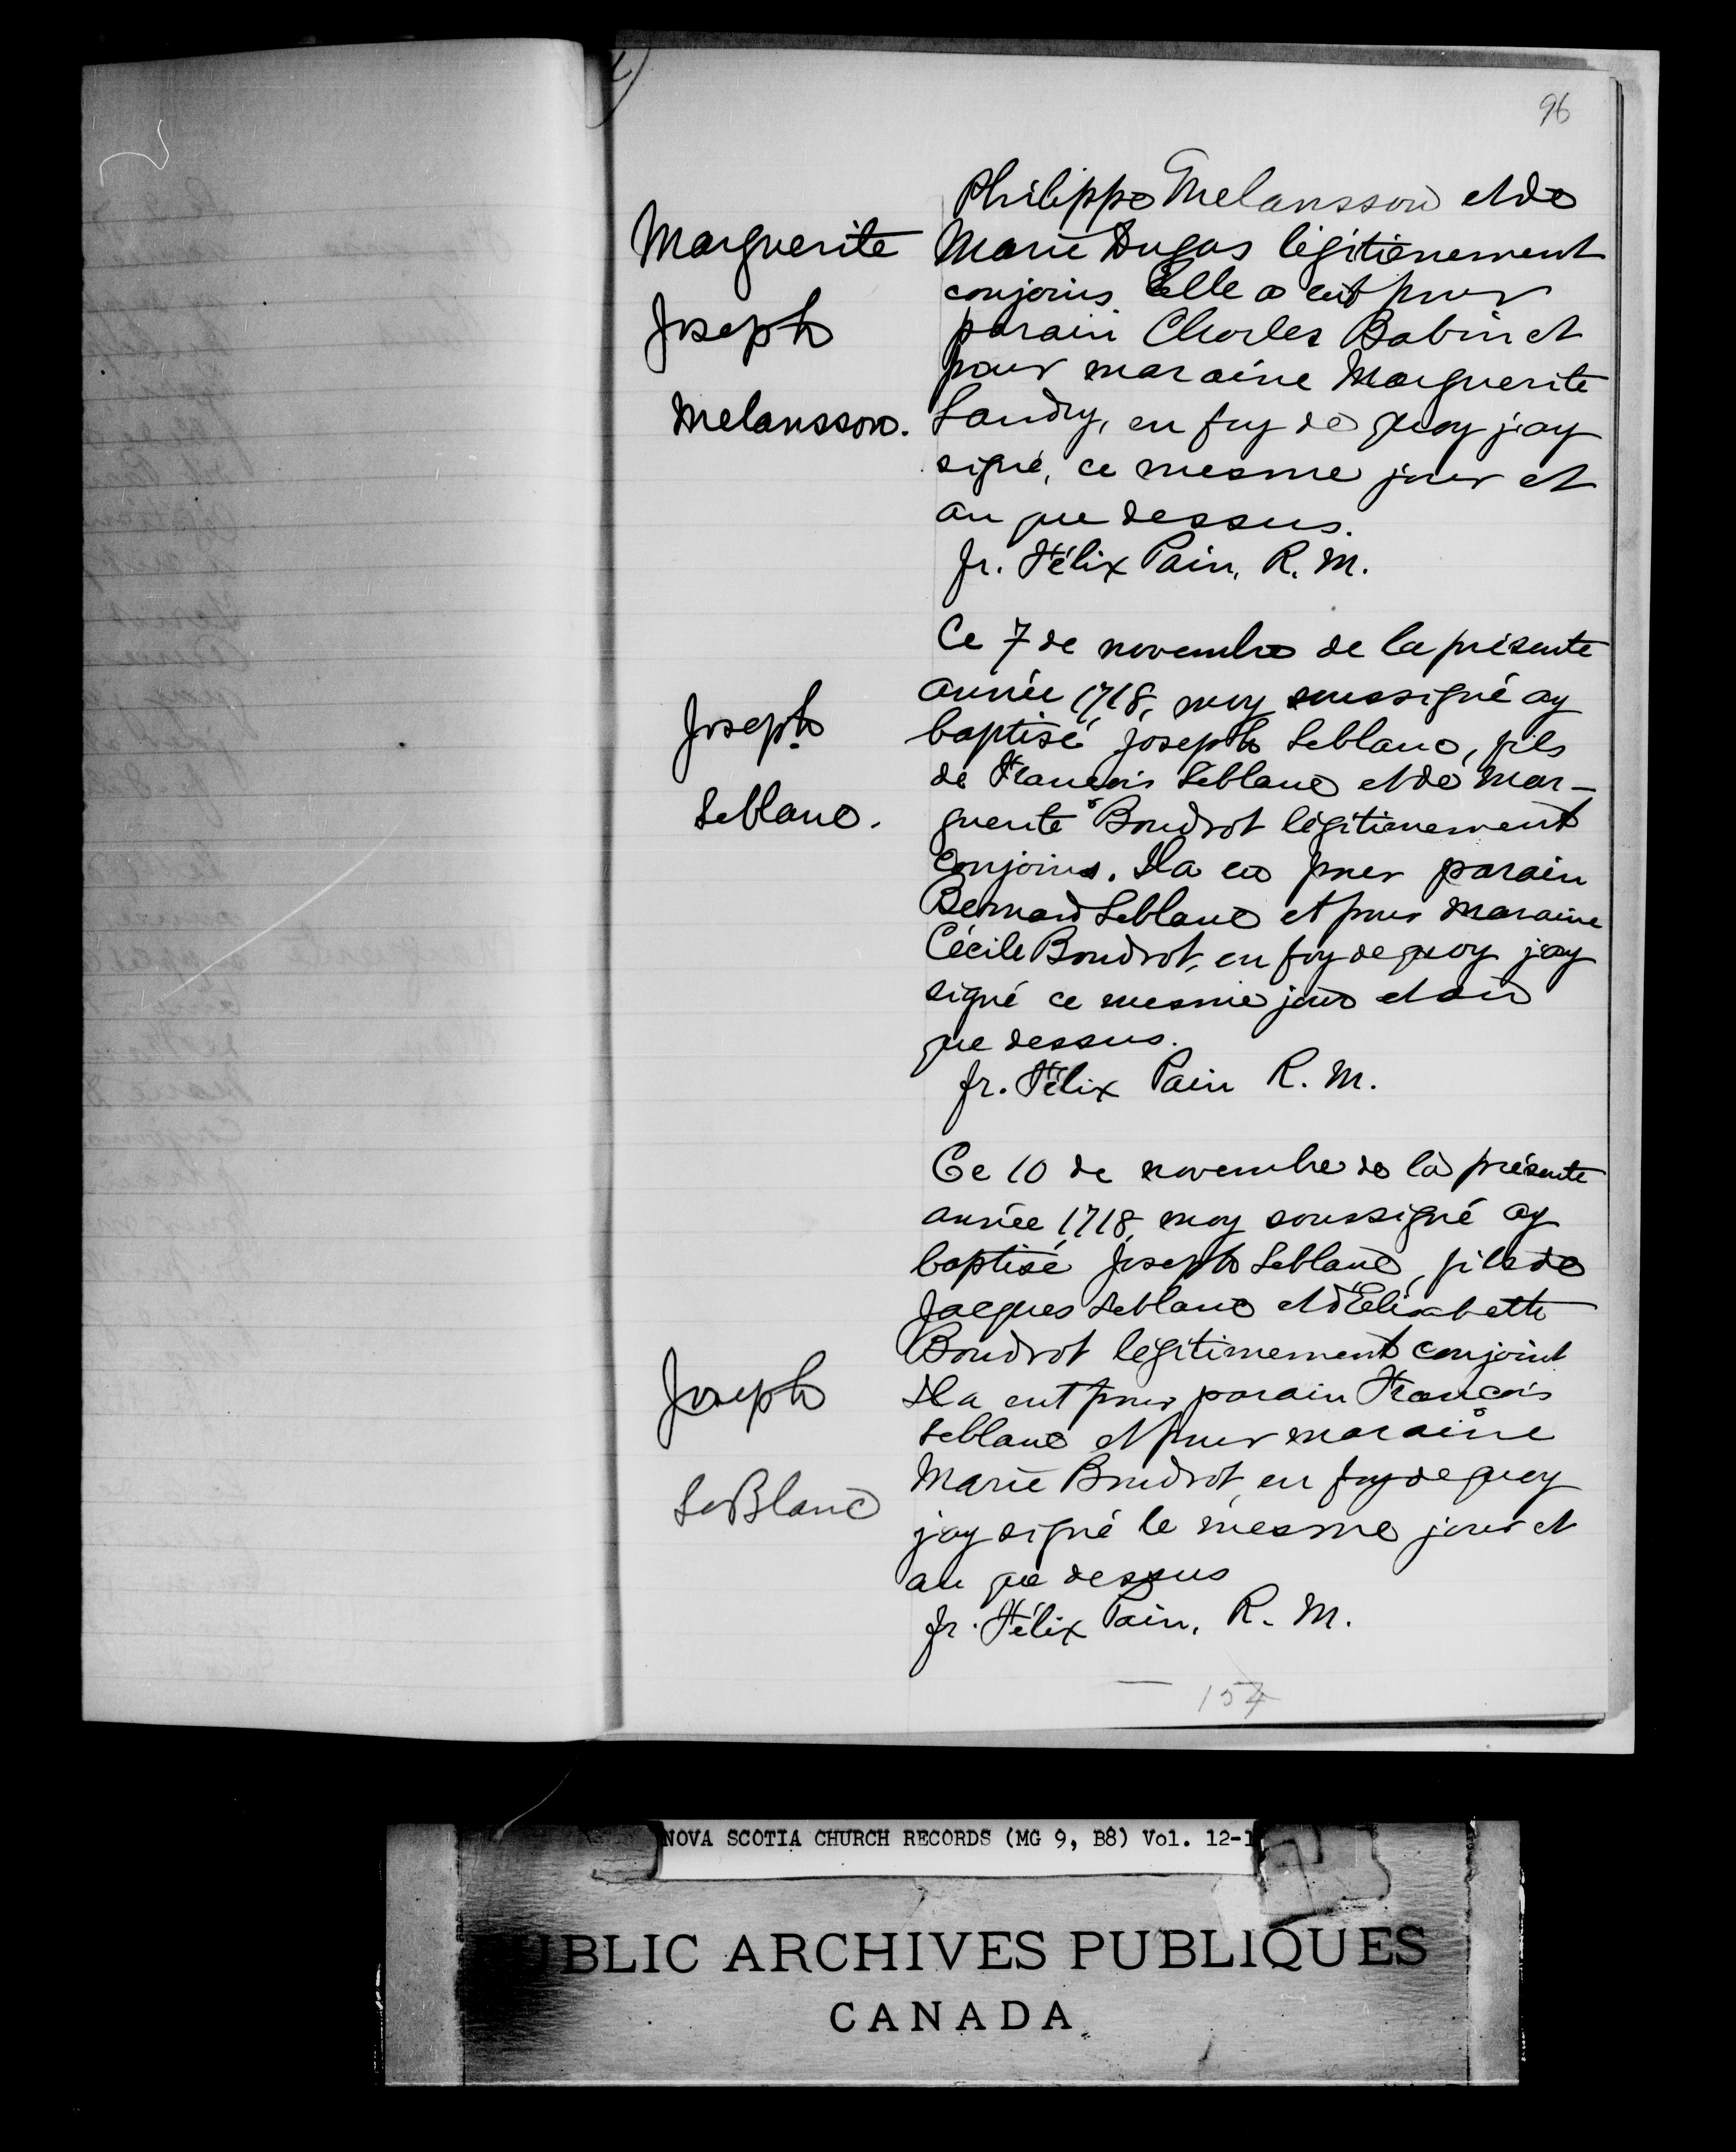 96
Philippe Melansson et de
Marguerite Marie Dugas légitimement
conjoins Elle a eut pour
Joseph parain Charles Babin et
pour maraine Marguerite
Melansson. Landry, en foy de quoy j'ay
signé, ce mesme jour et
an que dessus.
fr. Félix Pain, R. M.
Ce 7 de novembre de la présente
année 1718, moy soussigné ay
Joseph baptisé Joseph Leblanc, fils
de Francois Leblanc et de Mar-
Leblanc. guerite Boudrot légitimement
conjoins. Il a eu pour parain
Bernard Leblanc et pour maraine
Cécile Boudrot, en foy de quoy j'ay
signé ce mesme jour et an
que dessus.
fr. Félix Pain R. M.
Ce 10 de novembre de la présente
année 1718, moy soussigné ay
baptisé Joseph Leblanc, fils de
Jacques Leblanc et d'Elisabeth
Boudrot légitimement conjoint
Joseph Il a eut pour parain Francois
Leblanc et pour maraine
LeBlanc Marie Boudrot, en foy de quoy
j'ay signé le mesme jour et
an que dessus
fr. Félix Pain, R. M.
154
NOVA SCOTIA CHURCH RECORDS (MG 9, B8) Vol. 12-1
UBLIC ARCHIVES PUBLIQUES
CANADA